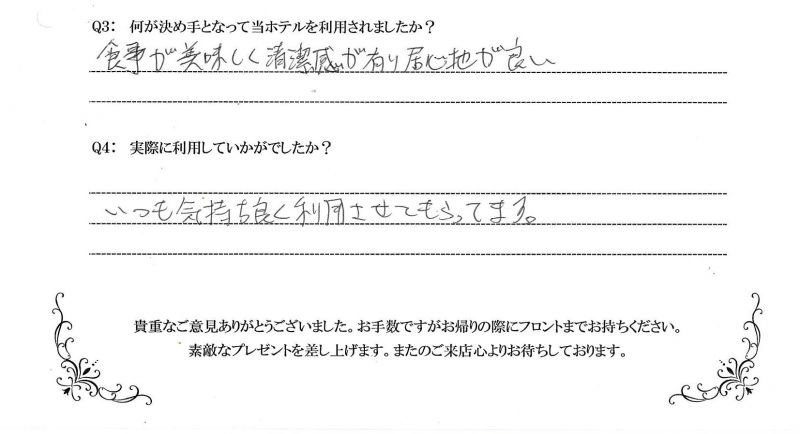 Q3: 何が決め手となって当ホテルを利用されましたか?
食事が美味しく清潔感が有り居心地が良い
Q4: 実際に利用していかがでしたか?
いつも気持ち良く利用させてもらってます。
貴重なご意見ありがとうございました。お手数ですがお帰りの際にフロントまでお持ちください。
素敵なプレゼントを差し上げます。またのご来店心よりお待ちしております。